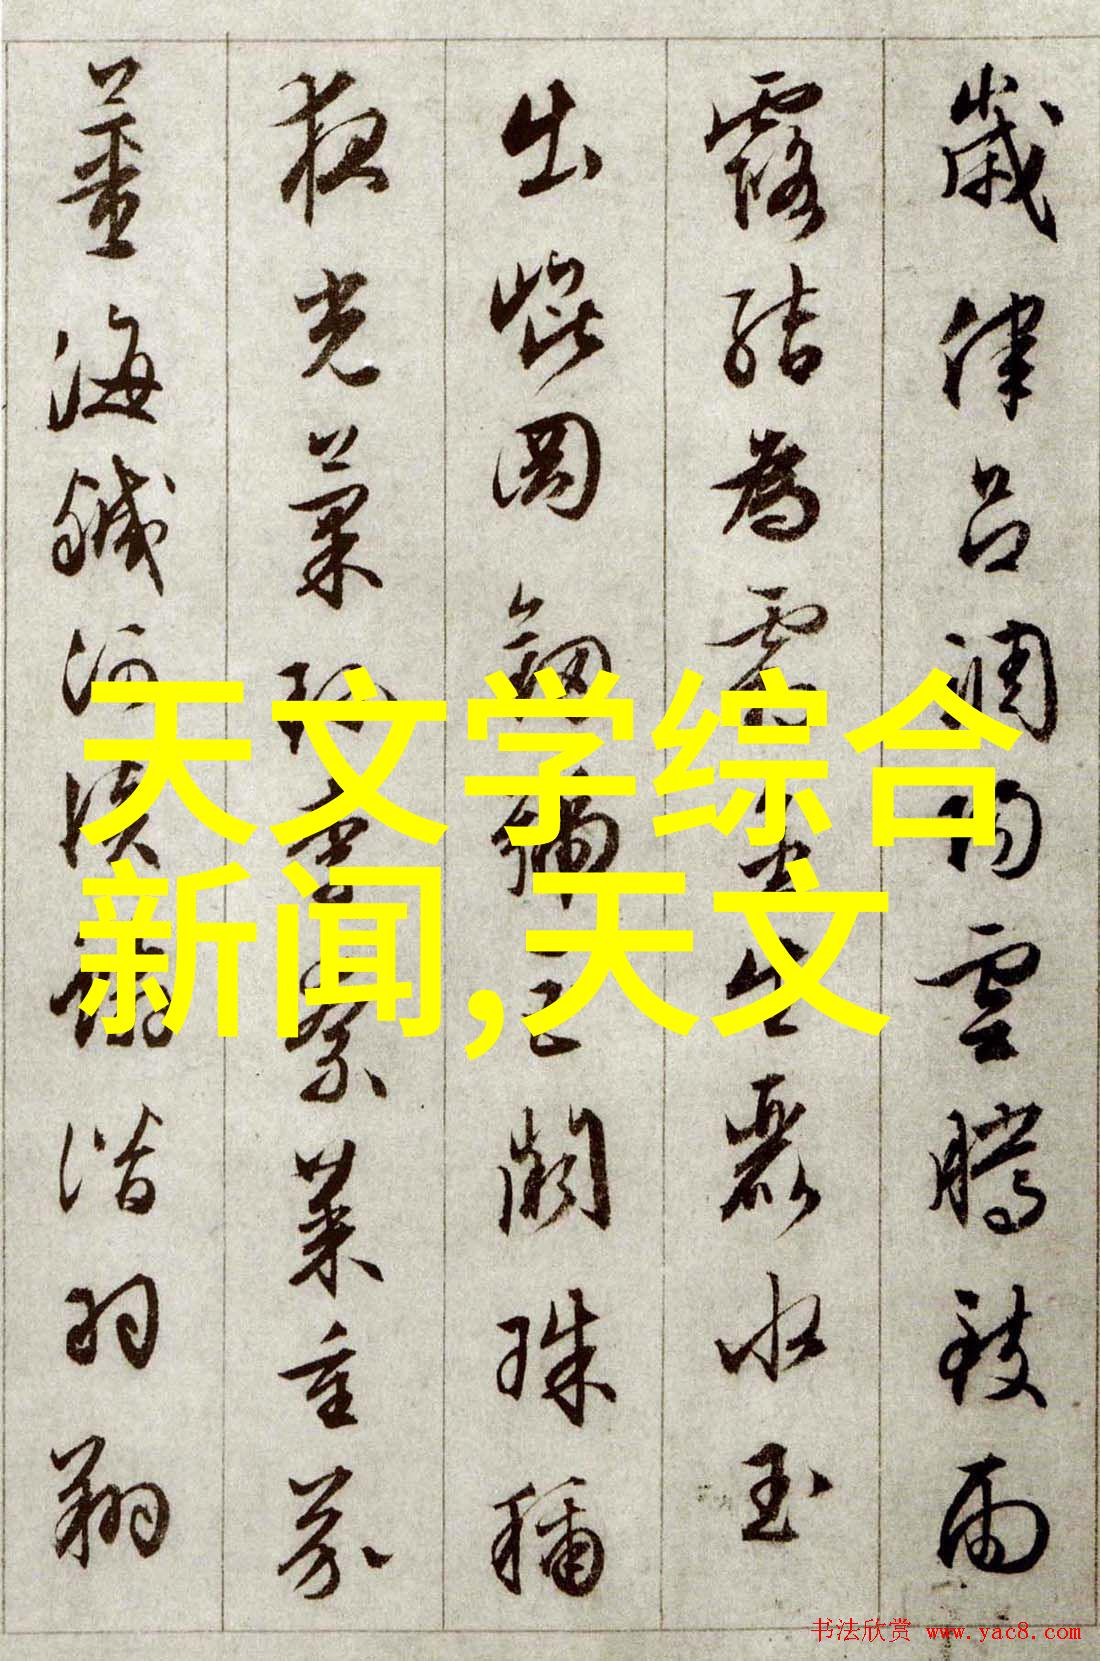 歲律呂調陽雲騰致雨
露結為霜金生麗水玉
出崐岡劍號巨闕珠稱
夜光菓珍李柰菜重芥
薑海鹹河淡鱗潛羽翔
天文学综合
新闻,天文
书法欣赏 www.yac8.com